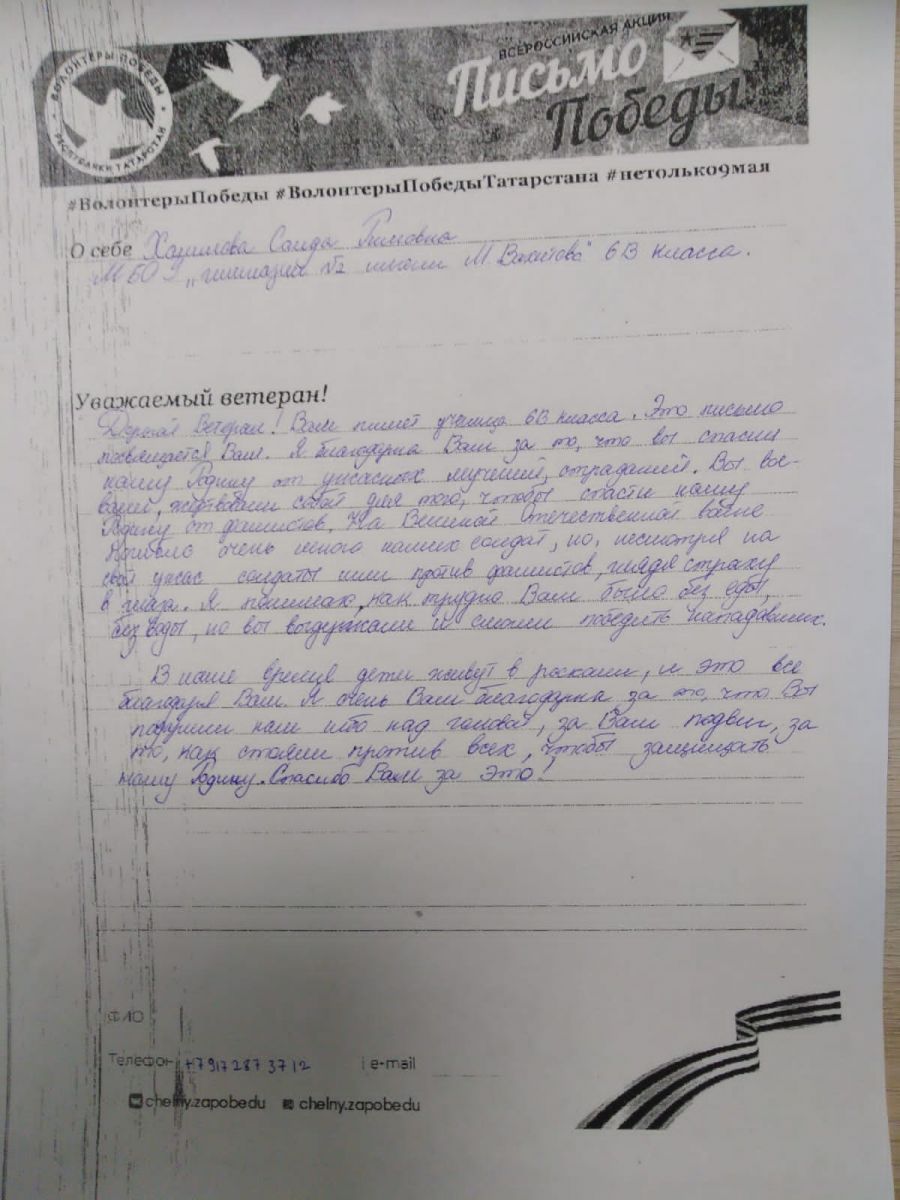 ВСЕРОССИЙСКАЯ АКЦИЯ
Письмо
Победы
ВОЛОНТЕРЫ ПОБЕДЫ
РЕСПУБЛИКИ ТАТАРСТАН
#ВолонтерыПобеды #ВолонтерыПобедыТатарстана #нетолько9мая
О себе Хашимова Саида Римовна
МБОУ „гимназии №2 имени М.Вахитова" 6В класса.
Уважаемый ветеран!
Дорогой Ветеран! Вам пишет ученица 6В класса. Это письмо
посвящается Вам. Я благодарна Вам за то, что вы спасли
нашу Родину от ужасных мучений, страданий. Вы вое-
вали, жертвовали собой для того, чтобы спасти нашу
Родину от фашистов. На Великой Отечественной войне
погибло очень много наших солдат, но, несмотря на
свой ужас солдаты шли против фашистов, глядя страху
в глаза. Я понимаю, как трудно Вам было без еды,
без воды, но вы выдержали и смогли победить нападавших.
В наше время дети живут в роскоши, и это все
благодаря Вам. Я очень Вам благодарна за то, что Вы
подарили нам небо над головой, за Ваш подвиг, за
то, как стояли против всех, чтобы защищать
нашу Родину. Спасибо Вам за это!
ФИО
Телефон +7 917 287 37 12 e-mail
chelny.zapobedu chelny.zapobedu